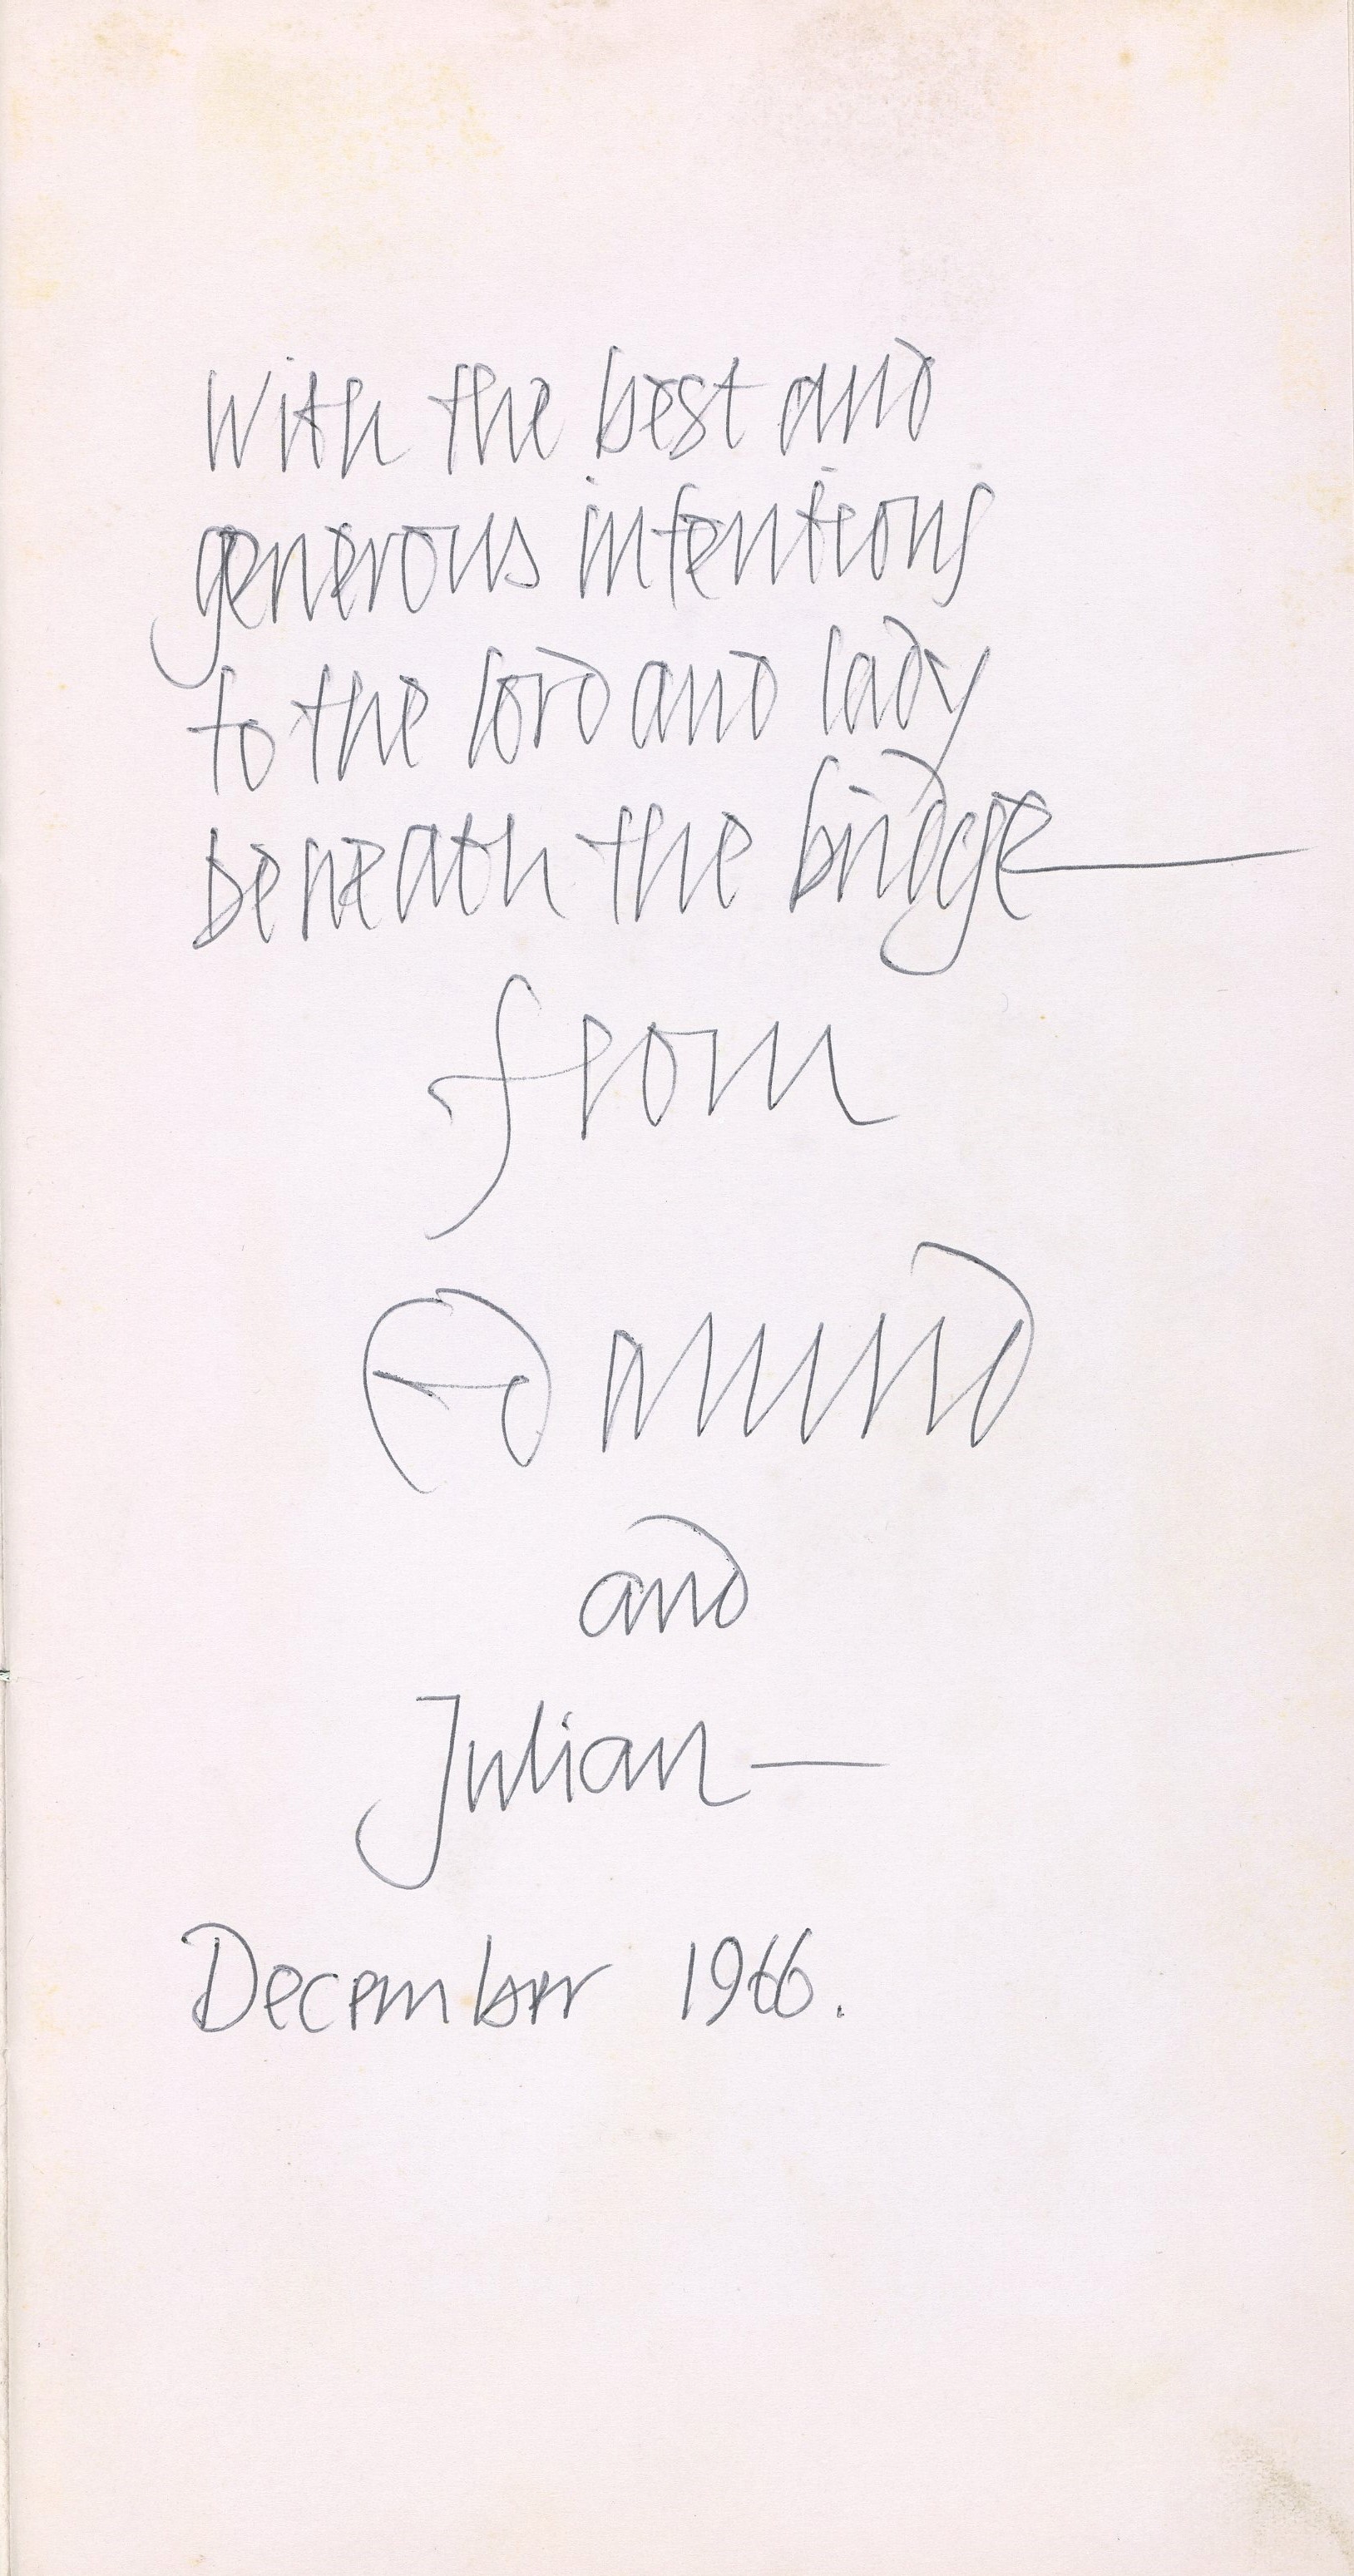 With the best and
generous intentions
to the lord and lady
beneath the bridge—
from
Edmund
and
Julian—
December 1966.